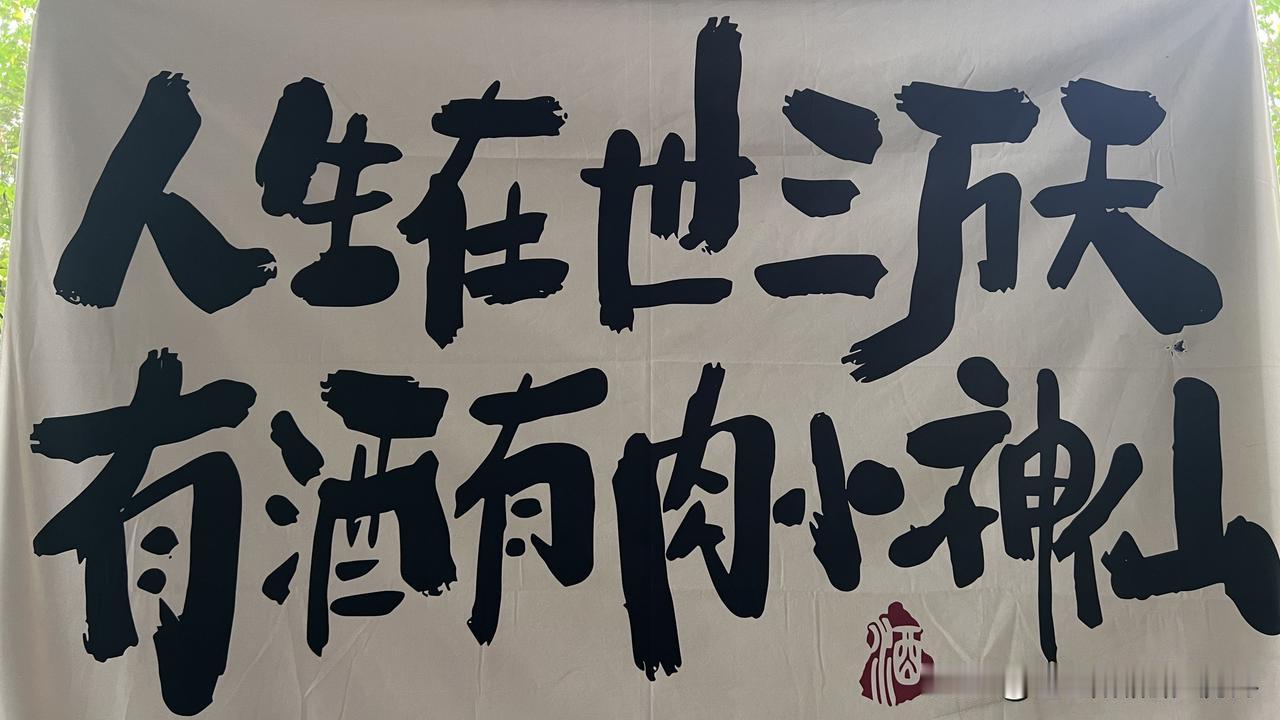 人生在世三万天
有酒有肉小神仙
酒